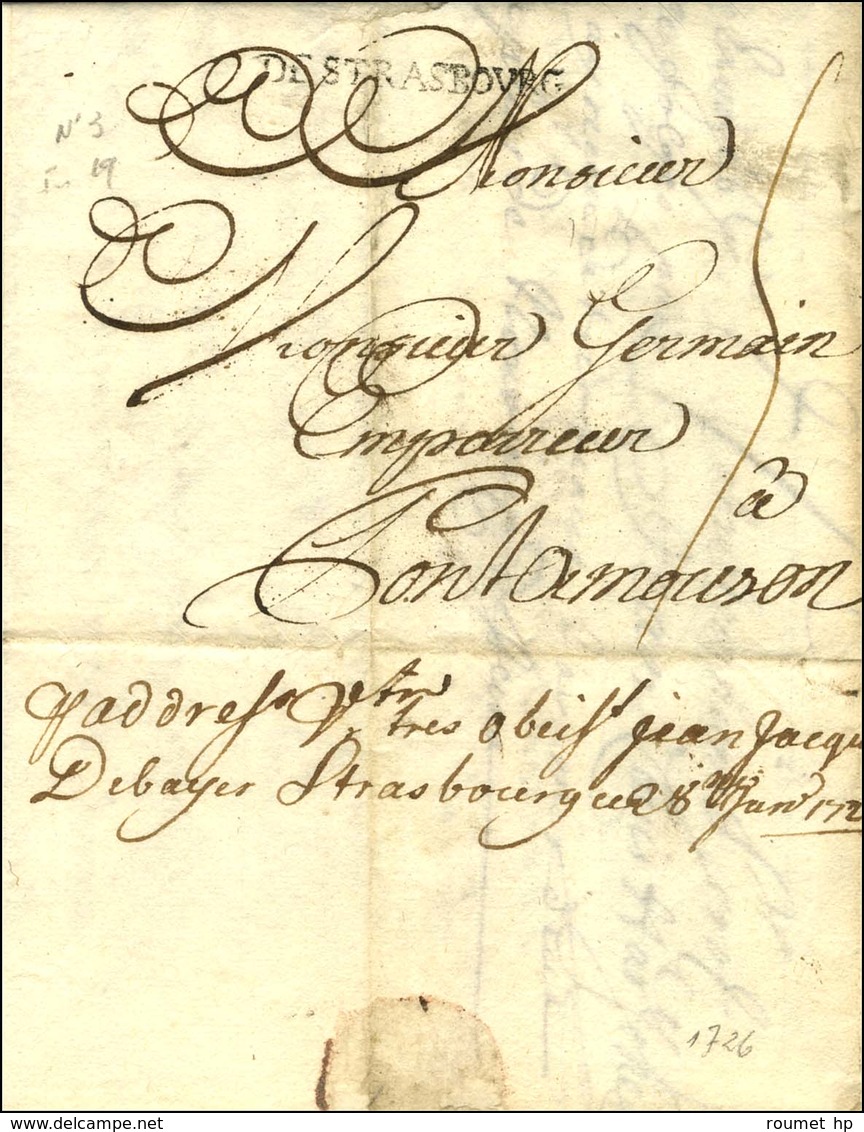 DE STRASBOVRG
N° 3
19
Monsieur
Monsieur Germain
Emparreur
à
Pontamouson
addresse Vtre
tres obeisst jean Jacqu
Debayer Strasbourg ce 28 Janv 172
1726
delcampe.net
roumet hp